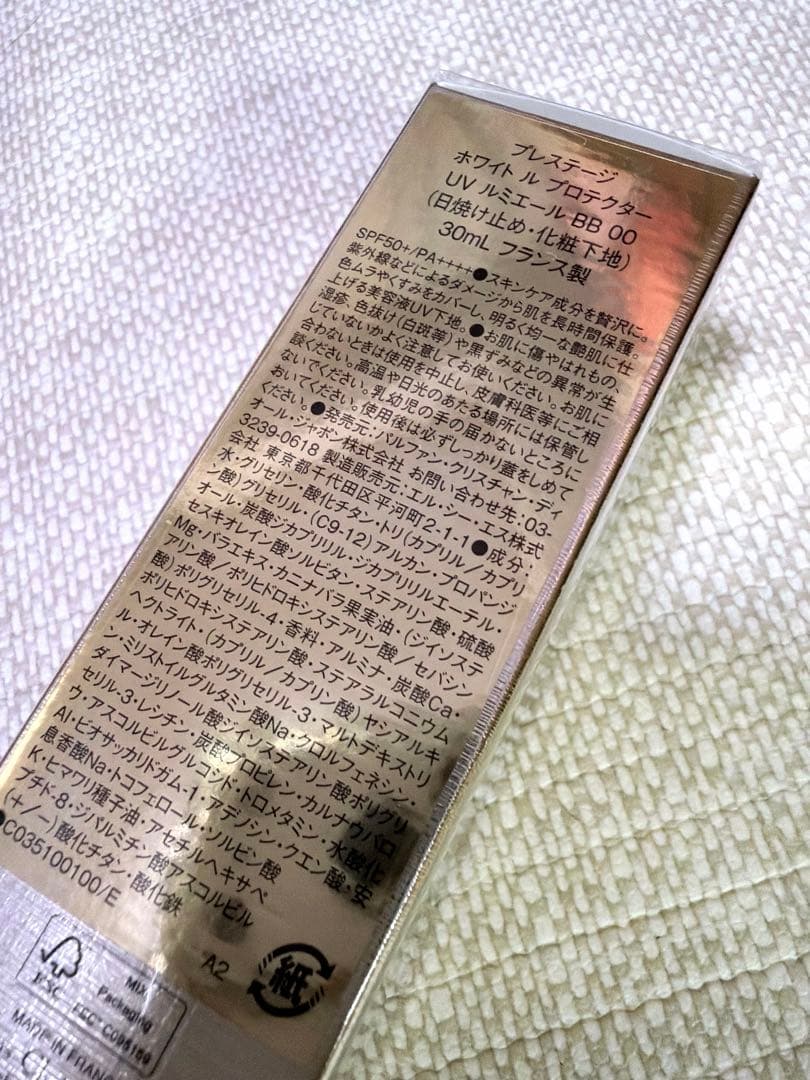 プレステージ
ホワイト ル プロテクター
UV ルミエール BB 00
(日焼け止め・化粧下地)
30mL フランス製
SPF50+/PA++++●スキンケア成分を贅沢に。
紫外線などによるダメージから肌を長時間保護。
色ムラやくすみをカバーし、明るく均一な艶肌に仕
上げる美容液UV下地。●お肌に傷やはれもの、
湿疹、色抜け(白斑等)や黒ずみなどの異常が生
じていないかよく注意してお使いください。お肌に
合わないときは使用を中止し、皮膚科医等にご相
談ください。高温や日光のあたる場所には保管し
ないでください。乳幼児の手の届かないところに
おいてください。使用後は必ずしっかり蓋をしめて
ください。●発売元:パルファン・クリスチャン・ディ
オール・ジャポン株式会社 お問い合わせ先:03-
3239-0618 製造販売元:エル・シー・エス株式
会社 東京都千代田区平河町2-1-1●成分・
水・グリセリン・酸化チタン・トリ(カプリル/カプリ
ン酸)グリセリル・(C9-12)アルカン・プロパンジ
オール・炭酸ジカプリリル・ジカプリリルエーテル・
セスキオレイン酸ソルビタン・ステアリン酸・硫酸
Mg・パラエキス・カニナバラ果実油・(ジイソステ
アリン酸/ポリヒドロキシステアリン酸/セバシン
酸)ポリグリセリル-4・香料・アルミナ・炭酸Ca・
ポリヒドロキシステアリン酸・ステアラルコニウム
ヘクトライト・(カプリル/カプリン酸)ヤシアルキ
ル・オレイン酸ポリグリセリル-3・マルトデキストリ
ン・ミリストイルグルタミン酸Na・クロルフェネシン・
ダイマージリノール酸ジイソステアリン酸ポリグリ
セリル-3・レシチン・炭酸プロピレン・カルナウバロ
ウ・アスコルビルグルコシド・トロメタミン・水酸化
Al・ビオサッカリドガム-1・アデノシン・クエン酸・安
息香酸Na・トコフェロール・ソルビン酸
K・ヒマワリ種子油・アセチルヘキサペ
プチド-8・ジパルミチン酸アスコルビル
(+/-)酸化チタン・酸化鉄
●C035100100/E
A2
紙
FSC
MIX
Packaging
MADE IN FRANC